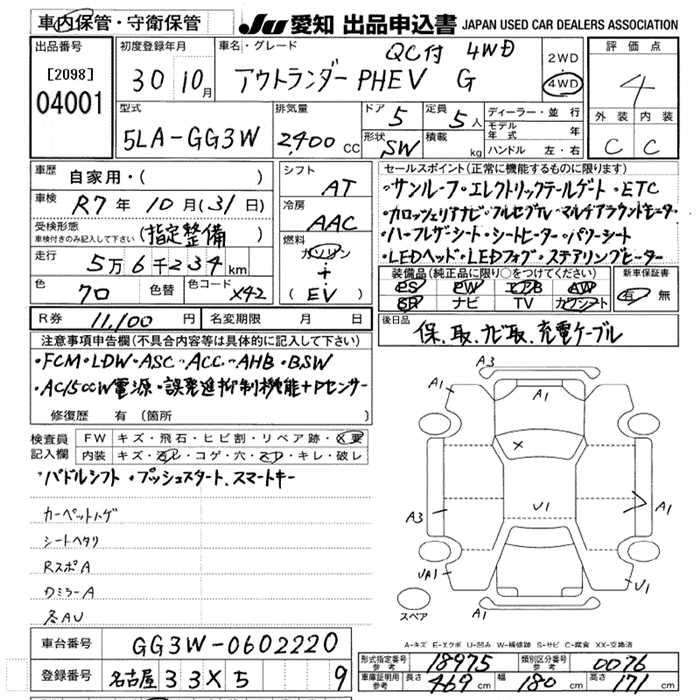 車内保管・守衛保管 JU 愛知 出品申込書 JAPAN USED CAR DEALERS ASSOCIATION
出品番号
[2098]
04001
初度登録年月
30 10月
車名・グレード
QC付 4WD
アウトランダーPHEV G
2WD
4WD
評価点
4
型式
5LA-GG3W
排気量
2,400 CC
ドア 5
定員 5人
形状 SW
積載 kg
ディーラー・並行
モデル年式 年
ハンドル 左・右
外装 内装
C C
車歴 自家用・( )
車検 R7年10月(31日)
受検形態
車検付きのみ記入して下さい (指定整備)
走行 5万6千234km
色 70 色替 色コード X42
シフト AT
冷房 AAC
燃料 ガソリン
+
(EV)
R券 11,100円 名変期限 月 日
セールスポイント(正常に機能するものに限ります)
・サンルーフ・エレクトリックテールゲート・ETC
・カロッツェリアナビ・フルセグTV・マルチアラウンドモニター
・ハーフレザーシート・シートヒーター・パワーシート
・LEDヘッド・LEDフォグ・ステアリングヒーター
装備品(純正品に限り○をつけてください) 新車保証書
PS PW エアB AW
SR ナビ TV カワシート 有 無
後日品
保、取、ナビ取、充電ケーブル
注意事項申告欄(不具合内容等は具体的に記入して下さい)
・FCM・LDW・ASC・ACC・AHB・BSW
・AC1500W電源・誤発進抑制機能+Pセンサー
修復歴 有 (箇所 )
検査員記入欄
FW キズ・飛石・ヒビ割・リペア跡・X要
内装 キズ・汚レ・コゲ・穴・スレ・キレ・破レ
・パドルシフト・プッシュスタート、スマートキー
カーペットハゲ
シートヘタリ
RスポA
ワミラーA
各AU
A3
A1
A1
A1
X
V1
A3
A1
UA1
V1
スペア
A-キズ E-エクボ U-凹み W-補修跡 S-サビ C-腐食 XX-交換済
車台番号 GG3W-0602220
登録番号 名古屋 33X5 9
形式指定番号
参考 18975
類別区分番号
参考 0076
車庫証明用
参考 長さ 469 cm 幅 180 cm 高さ 171 cm